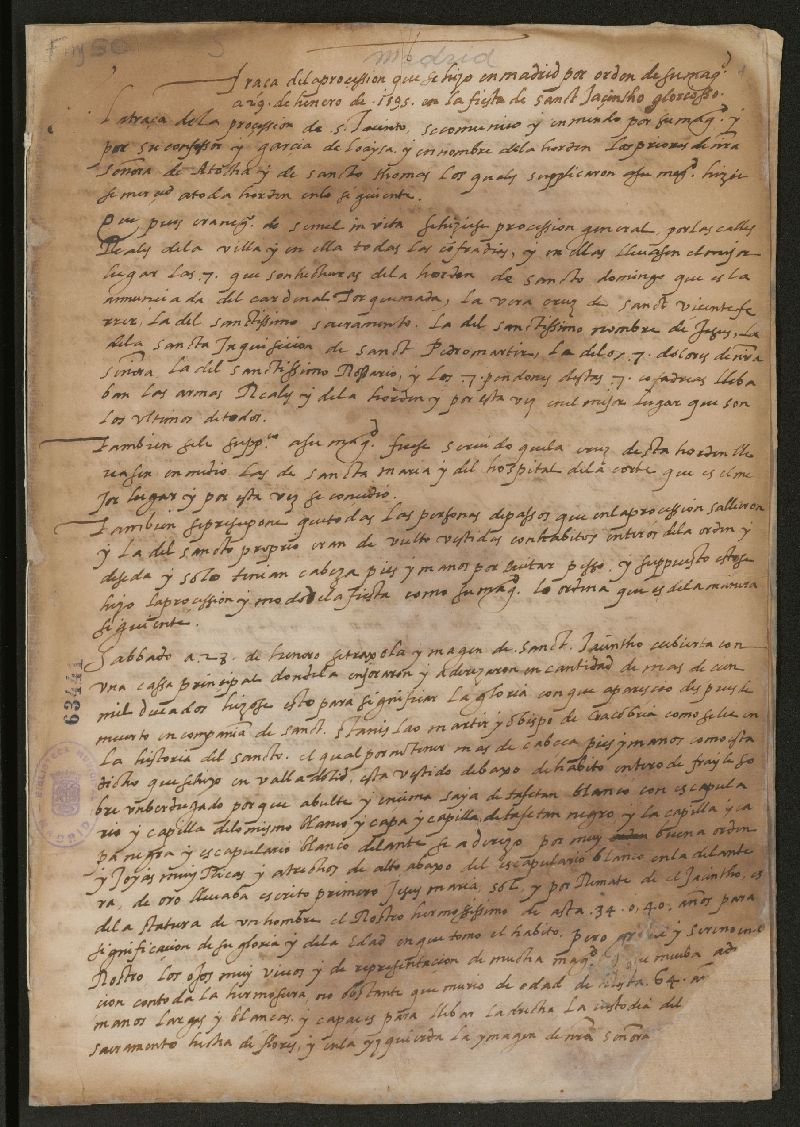 Madrid
Traça de la procession que se hizo en madrid por orden de su mag.d
a 29. de henero de .1595. en la fiesta de sanct Jacintho glorioso.
La traça de la procession de s. Jacinto, se comunico y enmendo por su mag.d y
por su confessor y garcia de loaysa, y en nombre de la horden los priores de nra
señora de Atocha y de sancto thomas los quales supplicaron a su mag.d hiziese
se merced a toda horden en lo siguiente.
Que pues era de semel in vita se hiziese procession general por las calles
Reales de la villa y en ella todas las cofradias, y en ellas lleuassen el mejor
lugar las .7. que son hechuras de la horden de sancto domingo que es la
annunciada del cardenal Torquemada, la vera cruz de sanct vicente fe
rrer, la del sanctissimo sacramento. la del sanctissimo nombre de Jesus, la
de la sancta Inquisicion de sanct Pedro martir, la de los .7. dolores de nra
señora la del sanctissimo Rosario, y los .7. pendones destas .7. cofadrias lleba
ban las armas Reales y de la horden y por esta vez en el mejor lugar que son
los vltimos de todos.
Tambien se le supp.co a su mag.d fuese seruido que la cruz desta horden lle
uasen en medio las de sancta maria y del hospital de la corte que es el me
jor lugar y por esta vez se concedio.
Tambien se presupone que todas las personas de passos que en la procession sallieron
y la del sancto proprio eran de vulto vestidas con habitos enteros de la orden y
de seda y solo tenian cabeza pies y manos por euitar pesso. y suppuesto esto se
hizo la procession y modo de la fiesta como su mag.d lo ordina que es de la manera
siguiente.
Sabbado a .28. de henero se traxo la ymagen de sanct. Jacintho cubierta con
vna cassa principal donde la enjoyaron y aderezaron en cantidad de mas de cien
mil ducados hizose esto para significar la gloria con que aparescio despues de
muerto en compania de sanct. Stanislao martir y obispo de Cracobia como se lee en
la historia del sancto. el qual por no tener mas de cabeça pies y manos como esta
dicho que se hizo en valladolid, esta vestido debaxo de habito entero de frayle so
bre vn berdugado porque abulte y encima saya de tafetan blanco con escapula
rio y capilla de lo mismo blanco y capa y capilla, de tafetan negro, y la capilla y ca
pa negra y escapulario blanco delante se aderezo por muy buena orden
y Joyas muy Ricas y atrechos de alto abaxo del escapulario blanco en la delante
ra, de oro lleuaba escrito primero Jesus maria, sol, y por Remate de el Jacintho, es
de la statura de vn hombre el Rostro hermosissimo de asta .34. o .40. años para
significacion de su gloria y de la edad en que tomo el habito. Pero y sereno en el
Rostro los ojos muy viuos y de representacion de mucha mag.d y que mueba a de
cion con toda la hermosura, no obstante que murio de edad de hasta .64. añ
manos largas y blancas y capaces para llebar la drecha la custodia del
sacramento hecha de flores, y en la yzquierda la ymagen de nra señora
63441
BIBLIOTECA
MADRID